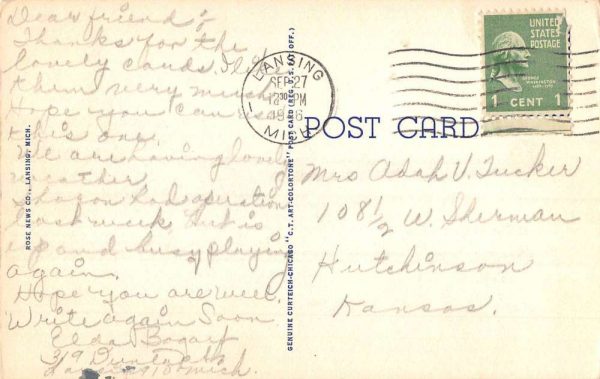 Dear friend:-
Thanks for the
lovely cards, I like
them very much
hope you can use
this one.
We are having lovely
weather
Sharon had operation
last week but is
up and busy playing
again.
Hope you are well.
Write again Soon
Elda Bogart
319
Lansing Mich.
ROSE NEWS CO., LANSING, MICH.
GENUINE CURTEICH-CHICAGO "C.T. ART-COLORTONE" POST CARD (REG. U.S. PAT. OFF.)
LANSING
SEP 27
12 30 PM
MICH
POST CARD
UNITED
STATES
POSTAGE
1 CENT 1
Mrs Adah V. Tucker
108 1/2 W. Sherman
Hutchinson
Kansas.